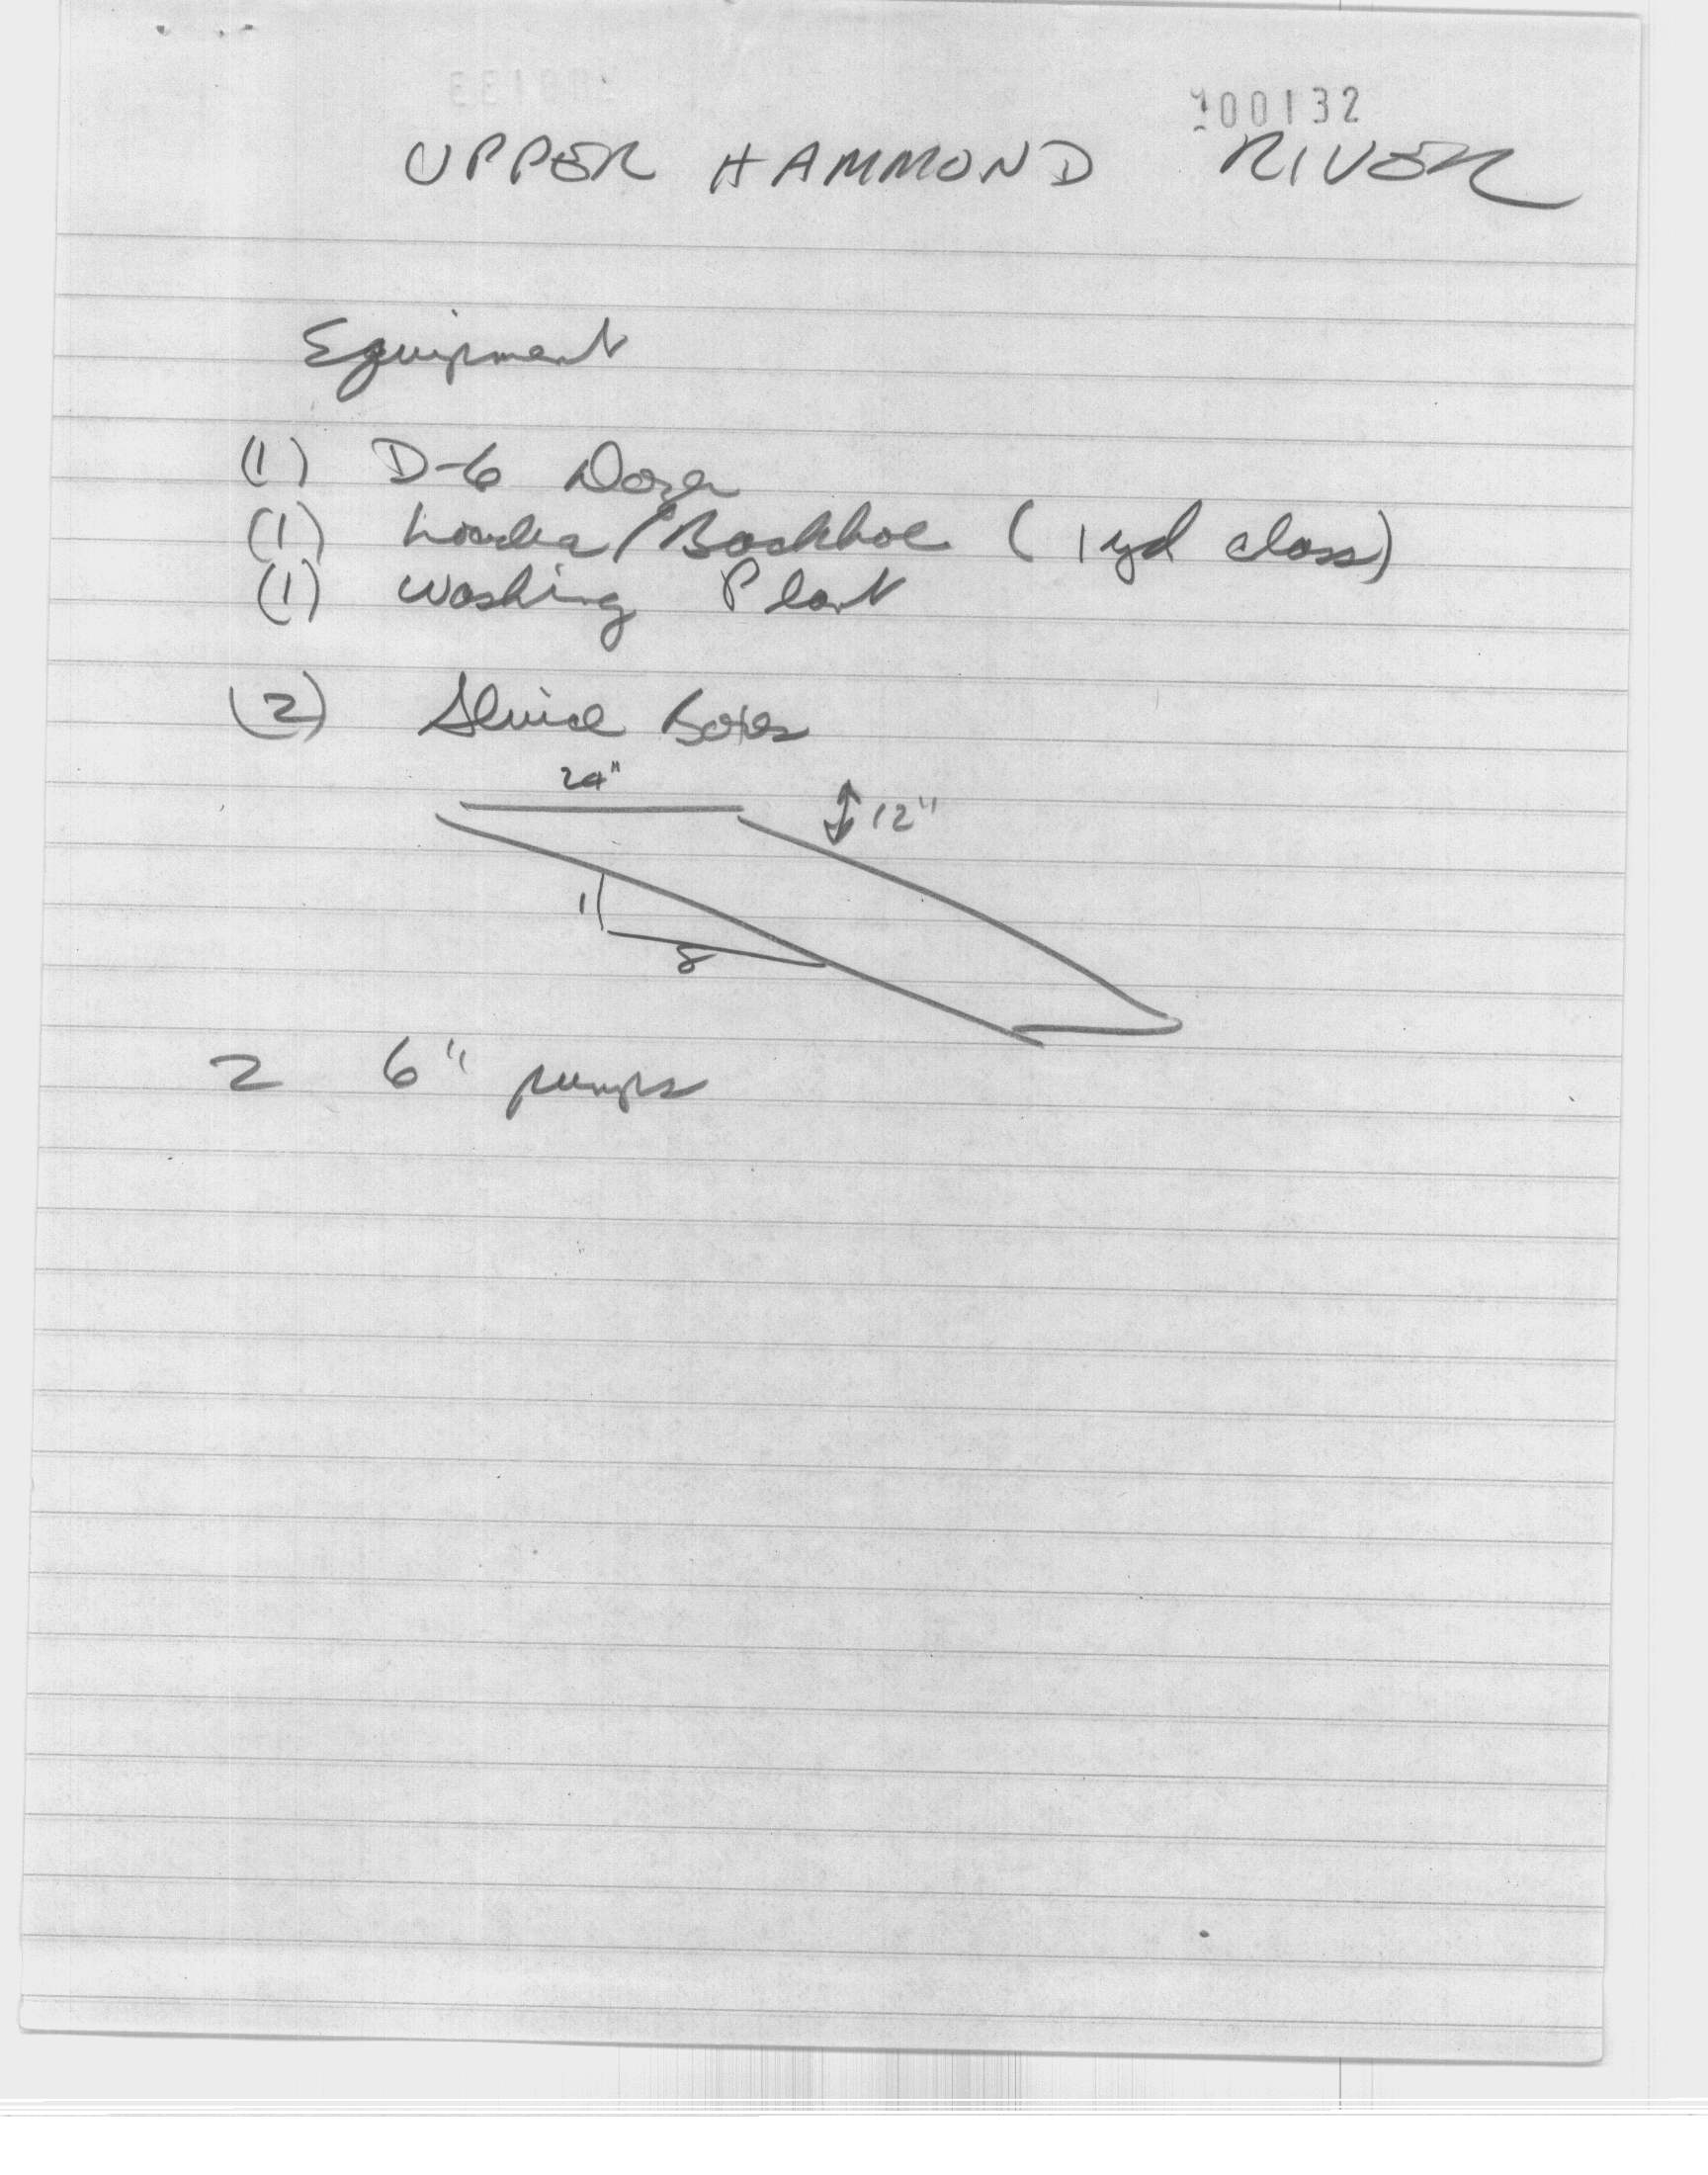 100132
UPPER HAMMOND RIVER
Equipment
(1) D-6 Dozer
(1) Loader/Backhoe (1 yd class)
(1) Washing Plant
(2) Sluice Boxes
24"
12"
1
8
2 6" pumps